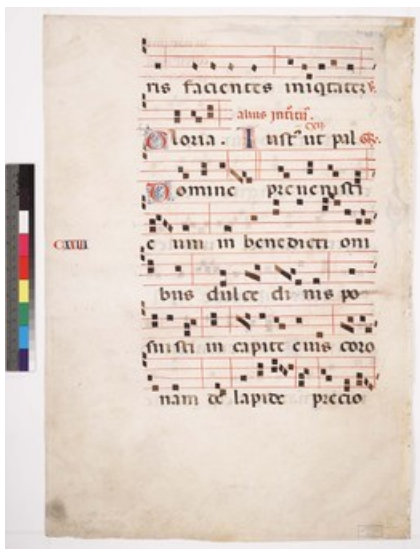 ris facientes iniqtatez
Gloria. Iust' ut pal
Domine prevenisti
e um in benedicti oni
bus dulce di nis po
suisti in capite eius coro
nam de lapide precio